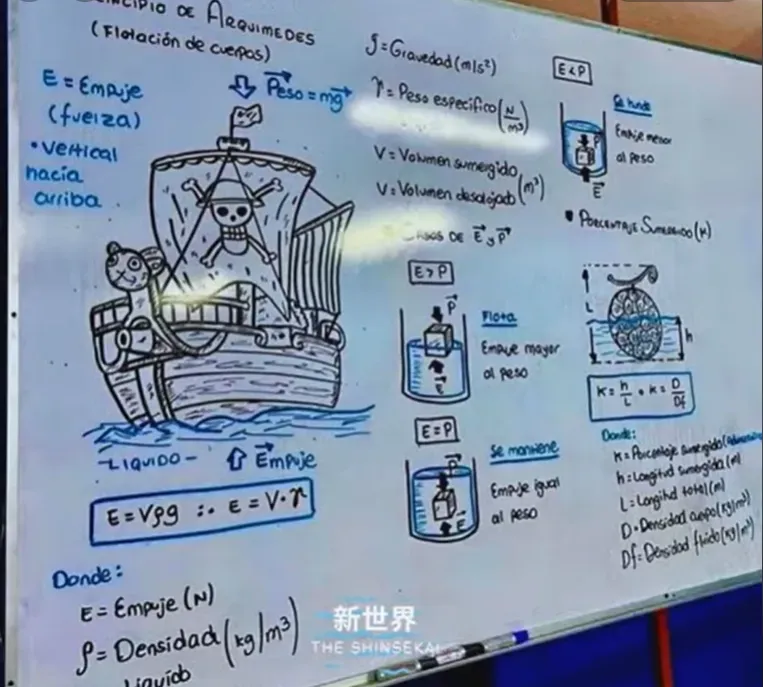 DE ARQUIMEDES
(Flotación de cuerpos)
E = Empuje
(fuerza)
• Vertical
hacia
arriba
Peso = mg
LIQUIDO
Empuje
E = Vρg ∴ E = V·γ
Donde:
E = Empuje (N)
ρ = Densidad (kg/m³)
Líquido
g = Gravedad (m/s²)
γ = Peso específico (N/m³)
V = Volumen sumergido
V = Volumen desalojado (m³)
CASOS DE E y P
E > P
P
E
Flota
Empuje mayor
al peso
E = P
P
E
Se mantiene
Empuje igual
al peso
E < P
P
E
Se hunde
Empuje menor
al peso
PORCENTAJE SUMERGIDO (K)
L
h
K = h/L • K = D/Df
Donde:
K = Porcentaje sumergido
h = Longitud sumergida (m)
L = Longitud total (m)
D = Densidad cuerpo (kg/m³)
Df = Densidad fluido (kg/m³)
新世界
THE SHINSEKAI